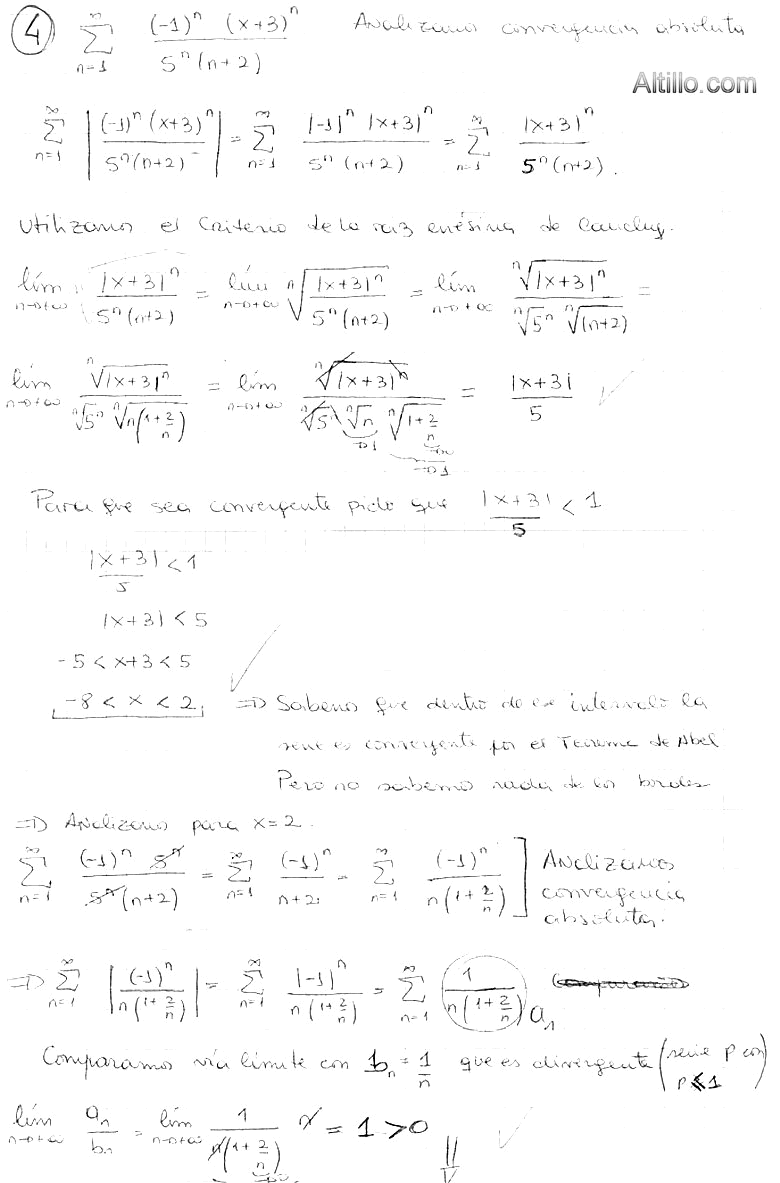 ④ ∞ Σ n=1 (-1)^n (x+3)^n / 5^n (n+2) Analizamos convergencia absoluta
Altillo.com
∞ Σ n=1 | (-1)^n (x+3)^n / 5^n (n+2) | = ∞ Σ n=1 |-1|^n |x+3|^n / 5^n (n+2) = ∞ Σ n=1 |x+3|^n / 5^n (n+2) .
Utilizamos el Criterio de la raiz enésima de Cauchy.
lím n→+∞ |x+3|^n / 5^n (n+2) = lím n→+∞ ⁿ√( |x+3|^n / 5^n (n+2) ) = lím n→+∞ ⁿ√|x+3|^n / ⁿ√5^n ⁿ√(n+2) =
lím n→+∞ ⁿ√|x+3|^n / ⁿ√5^n ⁿ√(n(1+2/n)) = lím n→+∞ ⁿ√|x+3|^n / ⁿ√5^n ⁿ√n ⁿ√(1+2/n) = |x+3| / 5
→1 →1
Para que sea convergente pido que |x+3| / 5 < 1
|x+3| / 5 < 1
|x+3| < 5
-5 < x+3 < 5
-8 < x < 2 ⇒ Sabemos que dentro de ese intervalo la
serie es convergente por el Teorema de Abel
Pero no sabemos nada de los bordes
⇒ Analizamos para x=2.
∞ Σ n=1 (-1)^n 5^n / 5^n (n+2) = ∞ Σ n=1 (-1)^n / n+2 = ∞ Σ n=1 (-1)^n / n(1+2/n) ] Analizamos
convergencia
absoluta.
⇒ ∞ Σ n=1 | (-1)^n / n(1+2/n) | = ∞ Σ n=1 |-1|^n / n(1+2/n) = ∞ Σ n=1 1 / n(1+2/n) an
Comparamos vía límite con bn = 1/n que es divergente (serie p con
p≤1)
lím n→+∞ an / bn = lím n→+∞ 1 / n(1+2/n) n = 1 > 0 ⇓